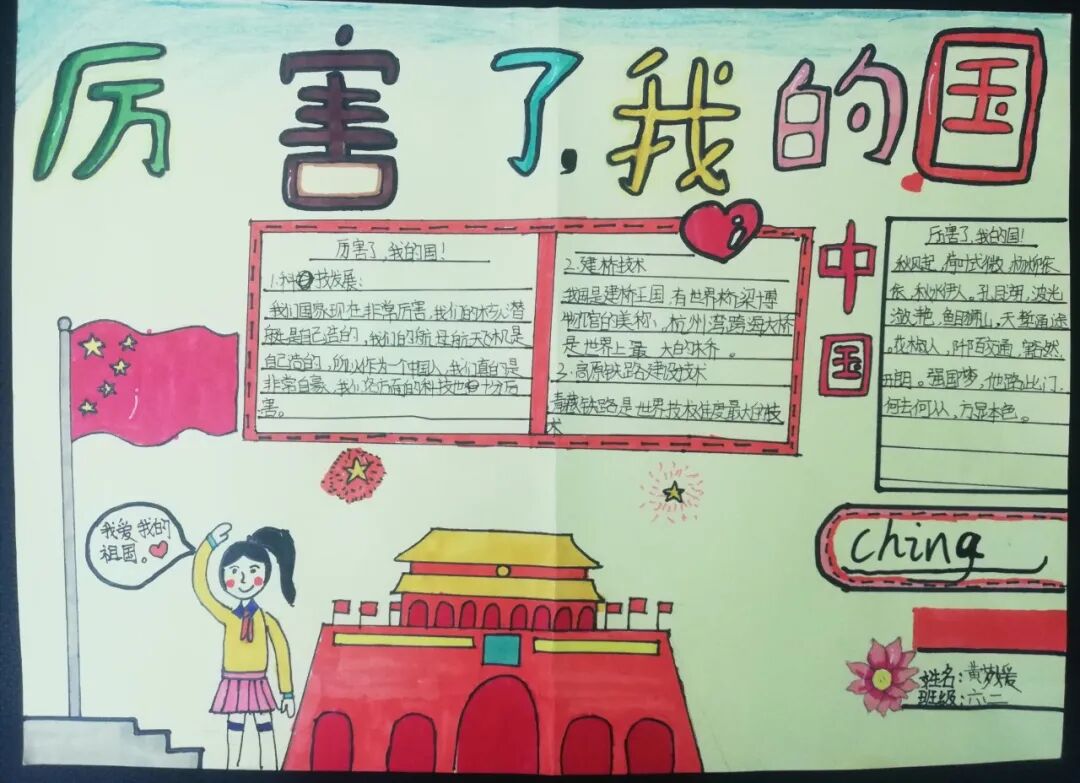 厉害了,我的国
厉害了,我的国!
1.科技发展:
我们国家现在非常厉害,我们的核心潜
艇是自己造的,我们的航母航天飞机是
自己造的,所以作为一个中国人,我们真的是
非常自豪,我们各方面的科技也十分厉
害。
2.建桥技术
我国是建桥王国,有世界桥梁博
物官的美称,杭州湾跨海大桥
是世界上最大的桥。
2.高原铁路建设技术
青藏铁路是世界技术难度最大的技
术
中国
厉害了,我的国!
秋风起,荷叶式微,杨柳依
依,秋水伊人。孔目湖,波光
潋艳,鲤鱼狮山,天堑通途
。花椒人,阡陌交通,豁然
开朗。强国梦,他路比门,
何去何从,方显本色。
china
我爱我的
祖国。
姓名:黄梦媛
班级:六二